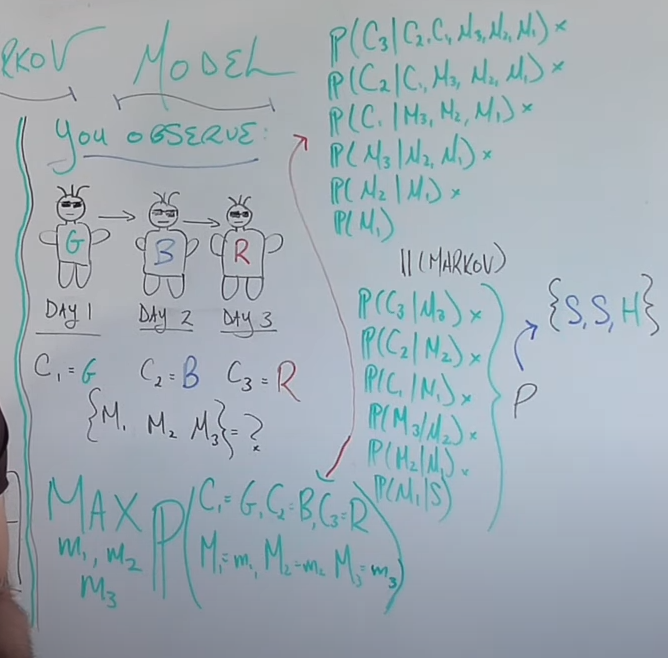 RKOV MODEL
YOU OBSERVE:
G B R
DAY 1 DAY 2 DAY 3
C₁=G C₂=B C₃=R
{M₁ M₂ M₃}=?
MAX P(C₁=G, C₂=B, C₃=R
m₁, m₂ M₁=m₁, M₂=m₂ M₃=m₃)
m₃
P(C₃|C₂,C₁,M₃,M₂,M₁)×
P(C₂|C₁,M₃,M₂,M₁)×
P(C₁|M₃,M₂,M₁)×
P(M₃|M₂,M₁)×
P(M₂|M₁)×
P(M₁)
||(MARKOV)
P(C₃|M₃)×
P(C₂|M₂)×
P(C₁|M₁)×
P(M₃|M₂)×
P(M₂|M₁)×
P(M₁|S)
P
{S,S,H}